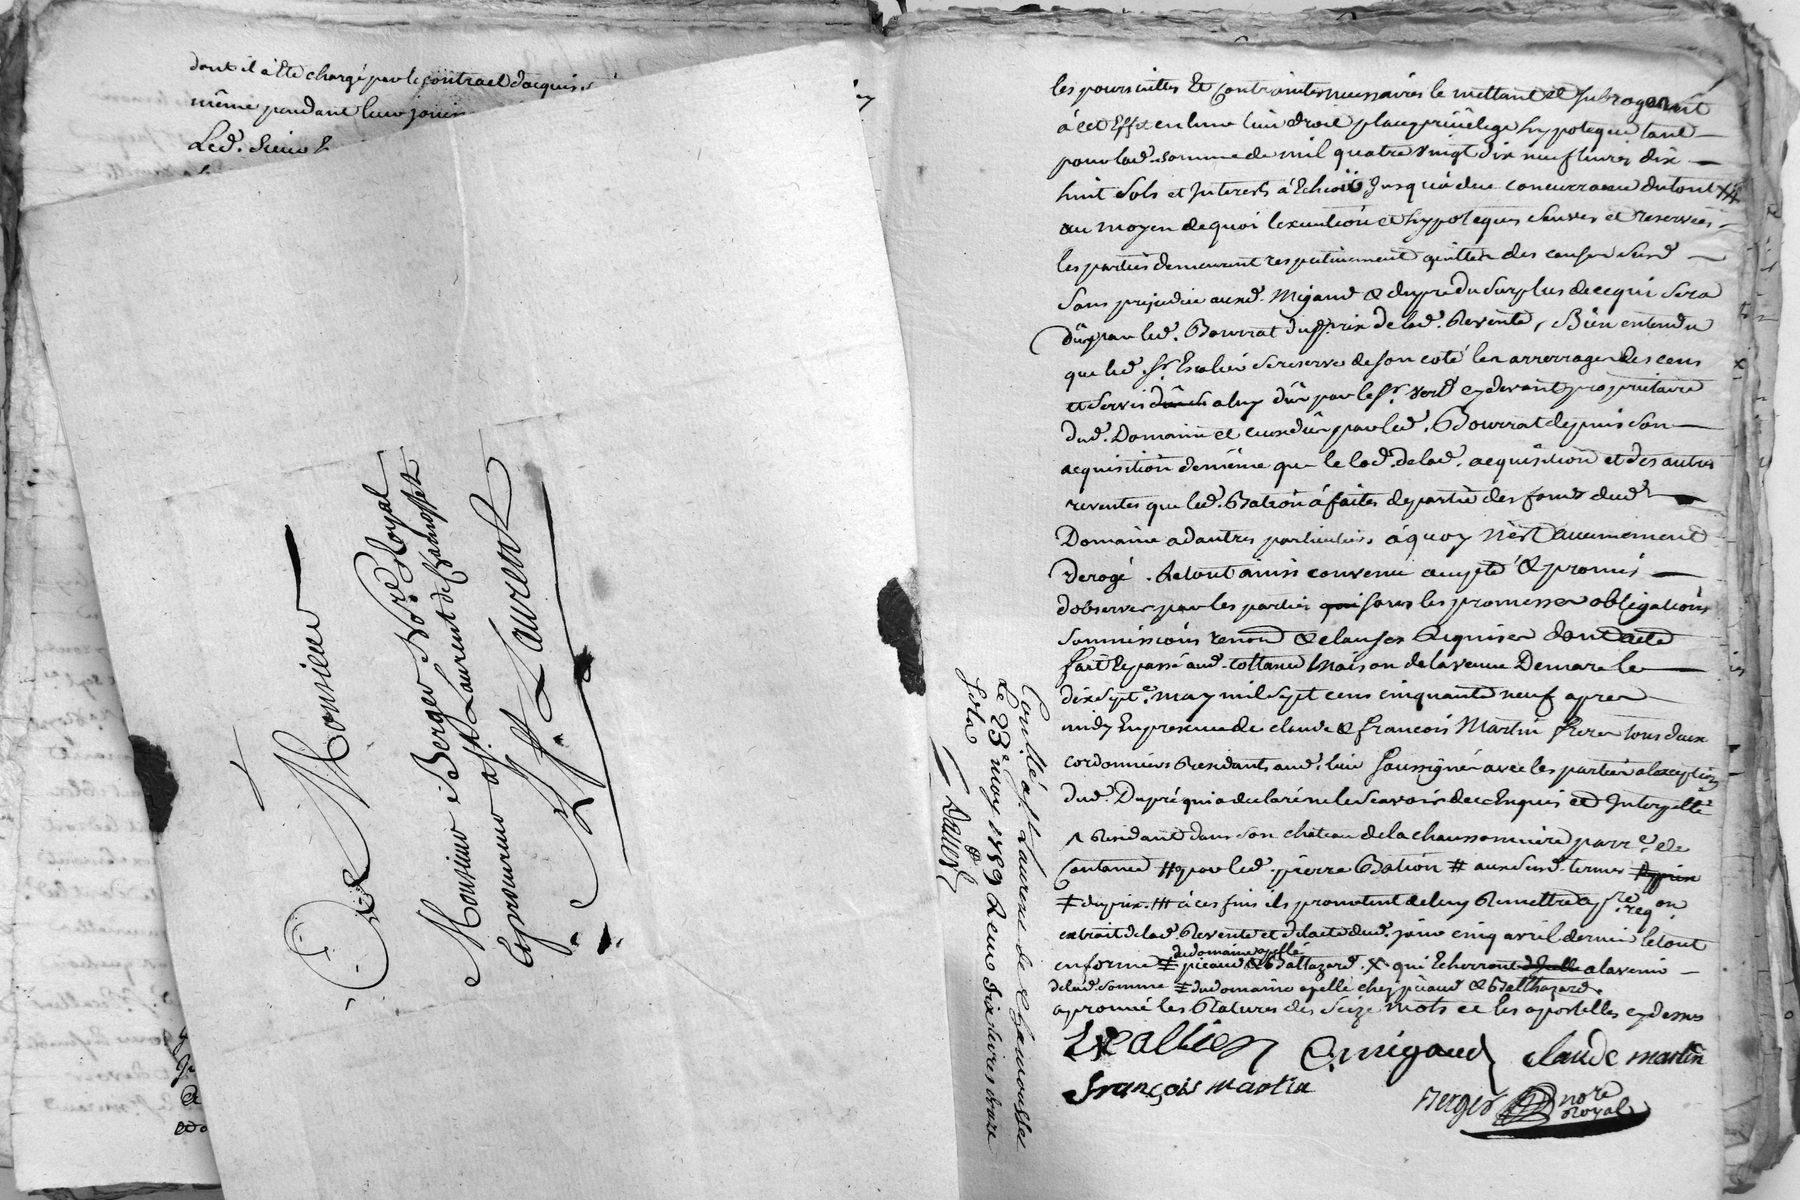 dont il a été chargé par le contract dacquis
même pendant leur jouis
Led. Sieur
A Monsieur
Monsieur Berger No.re Royal
et procureur a S.t Laurent de Chamousset
A S.t Laurent
les poursuittes Et Contraintes necessaires le mettant et subrogeant
à cet Effet en leur lieu droit place privilege hypoteque tant
pour lad. somme de mil quatre vingt dix neuf livres dix
huit sols et Interests à Echoir Jusqu'à due concurrance du tout
au moyen de quoi lexecution et hypoteques sauves et reservées
les parties demeurent respectivement quittes des causes susd.
Sans prejudice auxd. Migaud & dupré du surplus de ce qui sera
dû par led. Bourrat du prix de lad. Revente, Bien entendu
que led. Sr. Escalier se reserve de son coté les arrerages des cens
et servis a luy dûs par le Sr. cy devant proprietaire
dud. Domaine et ceux dûs par led. Bourrat depuis son
acquisition de même que le lod. de lad. acquisition et des autres
reventes que led. Bation à faites de partie des fonds dud.
Domaine a dautres particuliers à quoy n'est aucunement
derogé. Le tout ainsi convenu accepté & promis
dobserver par les parties sous les promesses obligations
soumissions renon.d & clauses Requises dont acte
fait Et passé aud. Cottance maison de la veuve Demare le
dix sept.e may mil sept cens cinquante neuf apres
midy En presence de claude & françois Martin freres tous deux
cordonniers Residants aud. lieu soussignés avec les parties a lexception
dud. Dupré qui a declaré ne le scavoir de ce Enquis et Interpellé
^ Residant dans son château de la chaussonniere parr.e de
Cottance # par led. pierre Bation # aux susd. termes
# dupré. ### à ces fins ils promettent de luy Remettre a p.re req.on
extrait de lad. Revente et de lacte dud. jour cinq avril dernier le tout
en forme # du domaine apellé picaud & Baltazard. X qui Echerront a lavenir
de lad. somme # du domaine apellé chez picaud & Balthazard.
approuvé les Ratures des seize mots et les apostilles cy dessus
Escallier Migaud claude martin
françois martin
Berger no.re Royal
Con.llé a S.t Laurent de Chamousset
Le 23.e may 1759 Reçu dix livres onze
sols